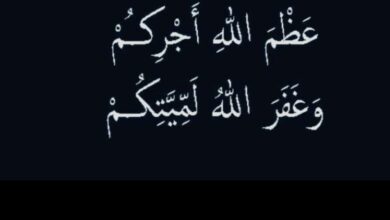 عَظْمَ اللهِ أَجْرِكُمْ
وَغَفَرَ اللهُ لَمِّيَّتِكُمْ